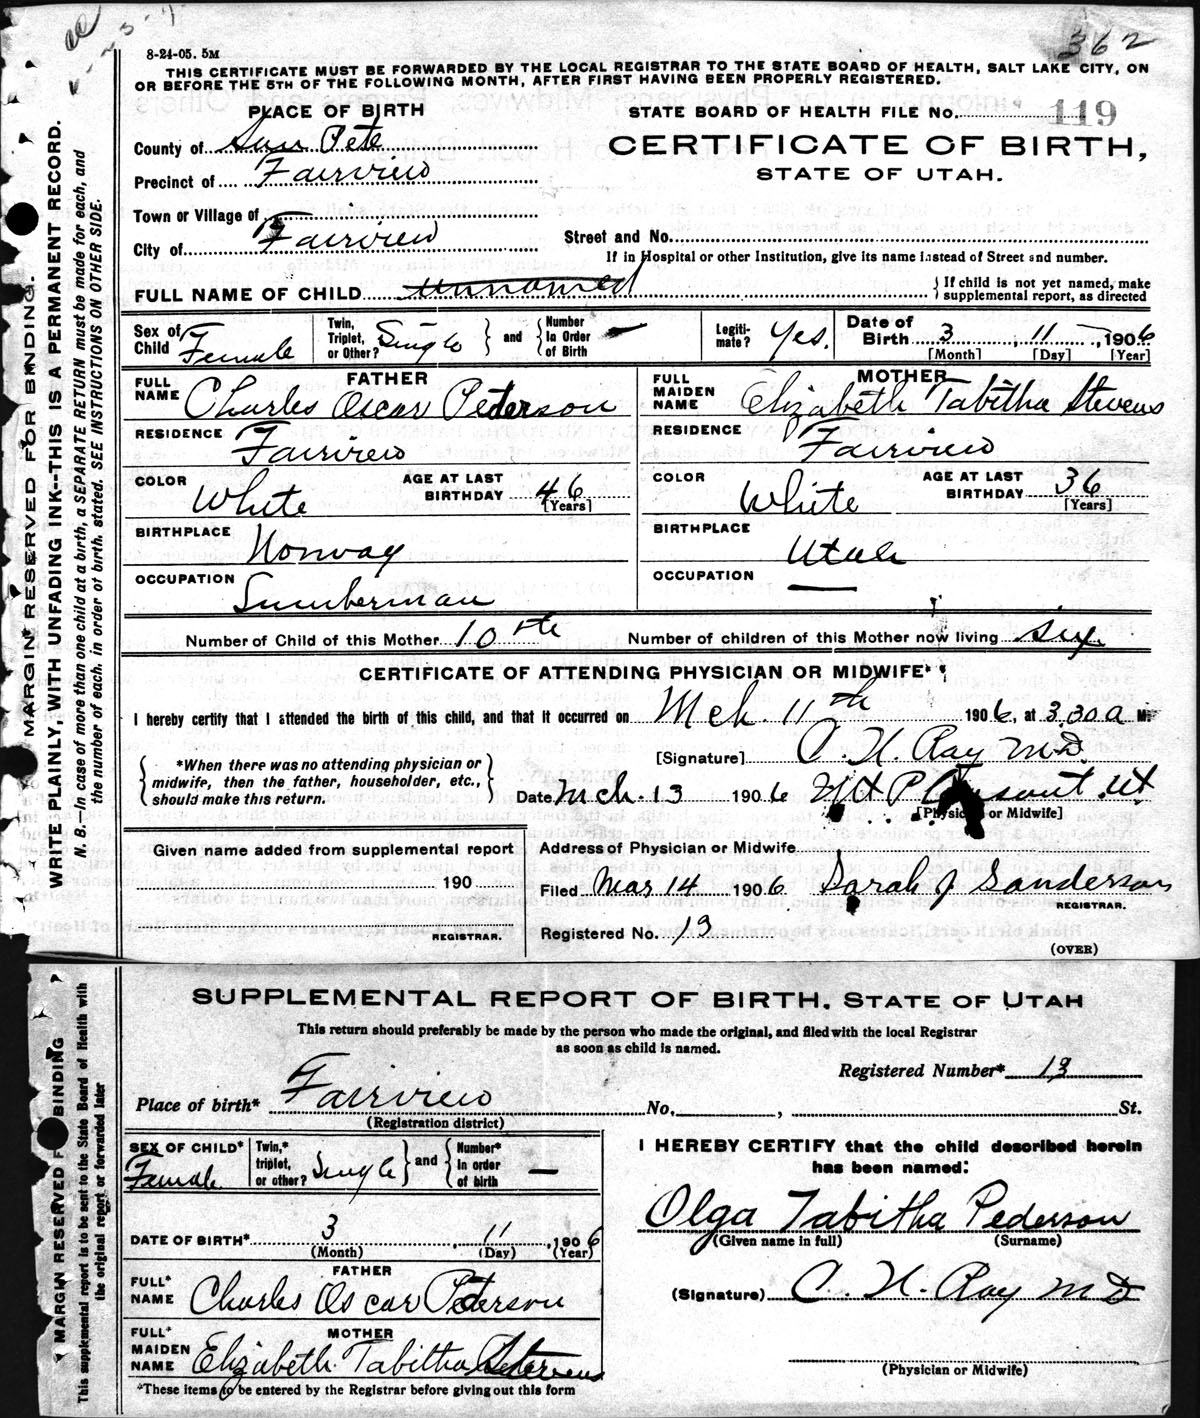 362
8-24-05. 5M
THIS CERTIFICATE MUST BE FORWARDED BY THE LOCAL REGISTRAR TO THE STATE BOARD OF HEALTH, SALT LAKE CITY, ON
OR BEFORE THE 5TH OF THE FOLLOWING MONTH, AFTER FIRST HAVING BEEN PROPERLY REGISTERED.
PLACE OF BIRTH
STATE BOARD OF HEALTH FILE No. 119
County of San Pete
CERTIFICATE OF BIRTH,
Precinct of Fairview
STATE OF UTAH.
Town or Village of
City of Fairview
Street and No.
If in Hospital or other Institution, give its name instead of Street and number.
FULL NAME OF CHILD unnamed
If child is not yet named, make
supplemental report, as directed
Sex of Child Female
Twin, Triplet, or Other? Single and Number In Order of Birth —
Legitimate? Yes.
Date of Birth 3 11 1906
[Month] [Day] [Year]
FATHER
FULL NAME Charles Oscar Pederson
RESIDENCE Fairview
COLOR White
AGE AT LAST BIRTHDAY 46 [Years]
BIRTHPLACE Norway
OCCUPATION Lumberman
MOTHER
FULL MAIDEN NAME Elizabeth Tabitha Stevens
RESIDENCE Fairview
COLOR White
AGE AT LAST BIRTHDAY 36 [Years]
BIRTHPLACE Utah
OCCUPATION —
Number of Child of this Mother 10th
Number of children of this Mother now living six
CERTIFICATE OF ATTENDING PHYSICIAN OR MIDWIFE*
I hereby certify that I attended the birth of this child, and that it occurred on Mch. 11th 1906, at 3.30 a M.
*When there was no attending physician or
midwife, then the father, householder, etc.,
should make this return.
[Signature] C. H. Ray MD.
Date Mch. 13 1906 Mt Pleasant Ut
[Physician or Midwife]
Given name added from supplemental report
190
REGISTRAR.
Address of Physician or Midwife
Filed Mar 14 1906 Sarah J Sanderson
REGISTRAR.
Registered No. 13
(OVER)
MARGIN RESERVED FOR BINDING.
WRITE PLAINLY, WITH UNFADING INK--THIS IS A PERMANENT RECORD.
N. B.—In case of more than one child at a birth, a SEPARATE RETURN must be made for each, and
the number of each, in order of birth, stated. SEE INSTRUCTIONS ON OTHER SIDE.
SUPPLEMENTAL REPORT OF BIRTH. STATE OF UTAH
This return should preferably be made by the person who made the original, and filed with the local Registrar
as soon as child is named.
Registered Number* 13
Place of birth* Fairview No. , St.
(Registration district)
SEX OF CHILD* Female
Twin,* triplet, or other? Single and Number* In order of birth —
DATE OF BIRTH* 3 11 1906
(Month) (Day) (Year)
FATHER
FULL* NAME Charles Oscar Pederson
MOTHER
FULL* MAIDEN NAME Elizabeth Tabitha Stevens
*These items to be entered by the Registrar before giving out this form
I HEREBY CERTIFY that the child described herein
has been named:
Olga Tabitha Pederson
(Given name in full) (Surname)
(Signature) C. H. Ray MD
(Physician or Midwife)
MARGIN RESERVED FOR BINDING
This supplemental report is to be sent to the State Board of Health with
the original report, or forwarded later